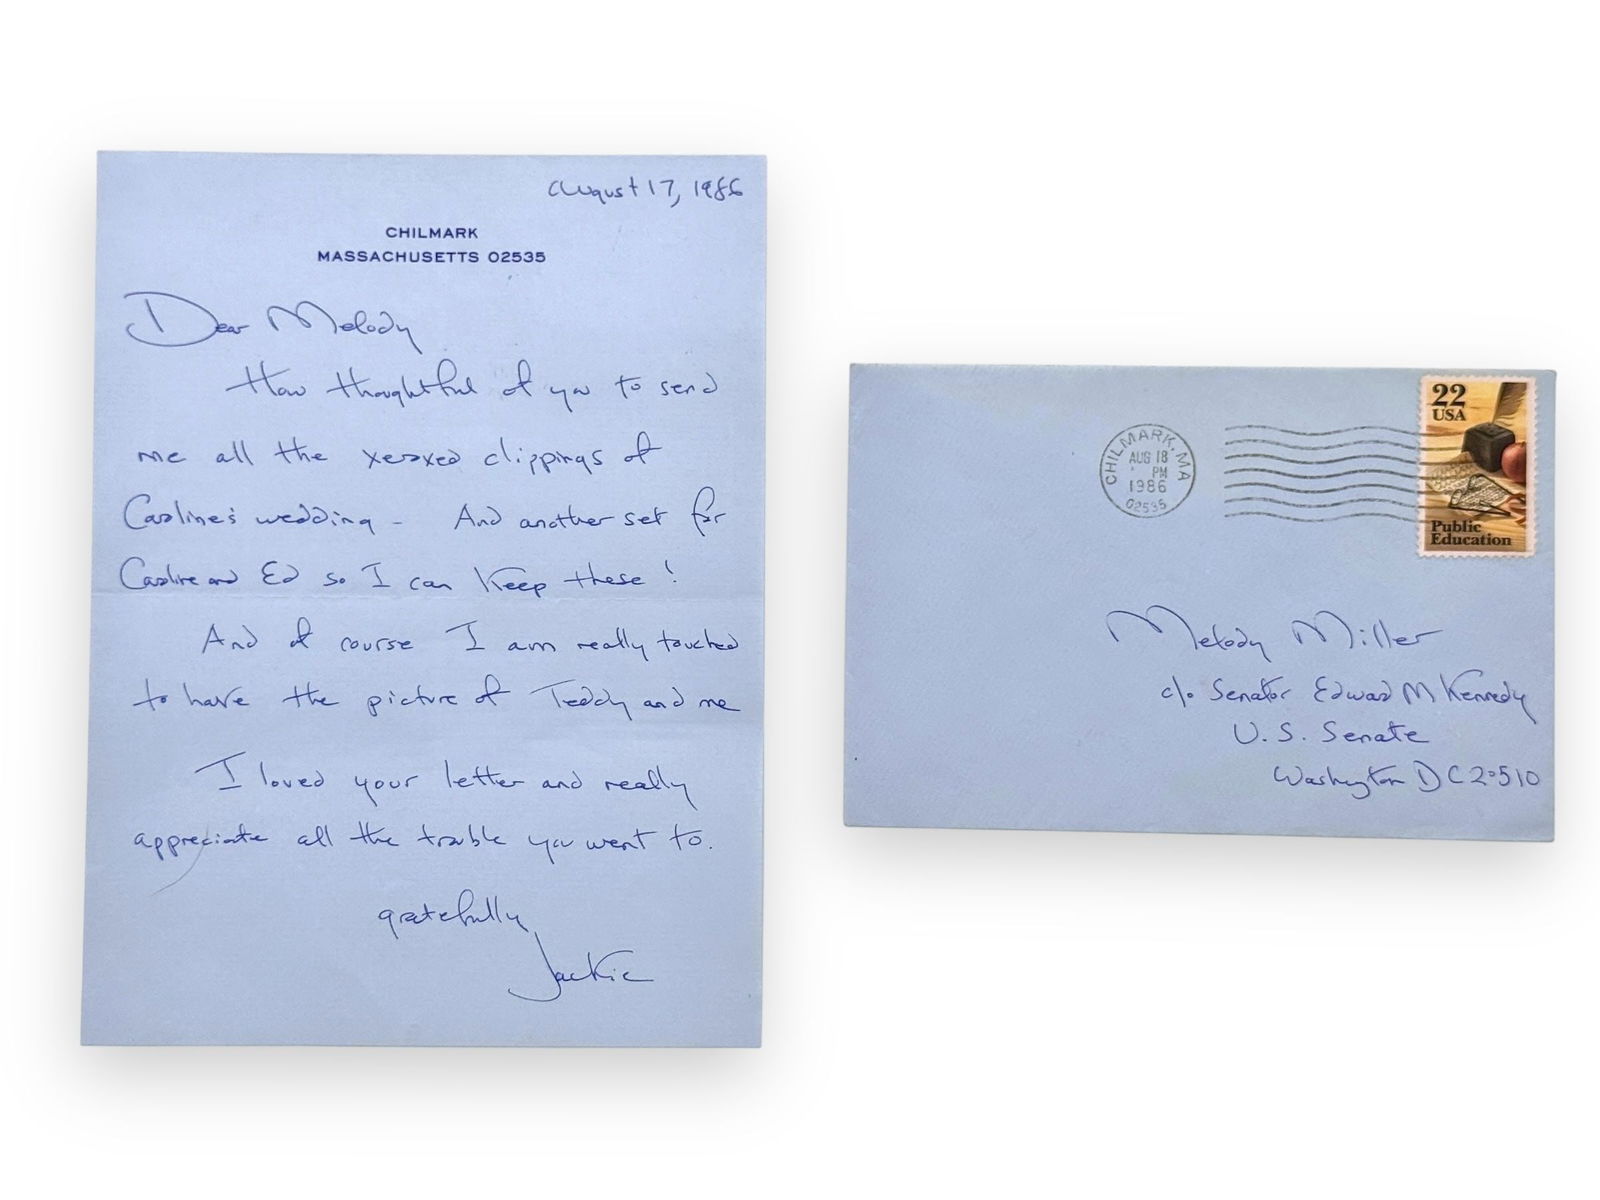 August 17, 1986
CHILMARK
MASSACHUSETTS 02535
Dear Melody
How thoughtful of you to send
me all the xeroxed clippings of
Caroline's wedding - And another set for
Caroline and Ed so I can keep these!
And of course I am really touched
to have the picture of Teddy and me
I loved your letter and really
appreciate all the trouble you went to.
gratefully,
Jackie
CHILMARK, MA
AUG 18
PM
1986
02535
22
USA
Public
Education
Melody Miller
c/o Senator Edward M Kennedy
U.S. Senate
Washington DC 20510